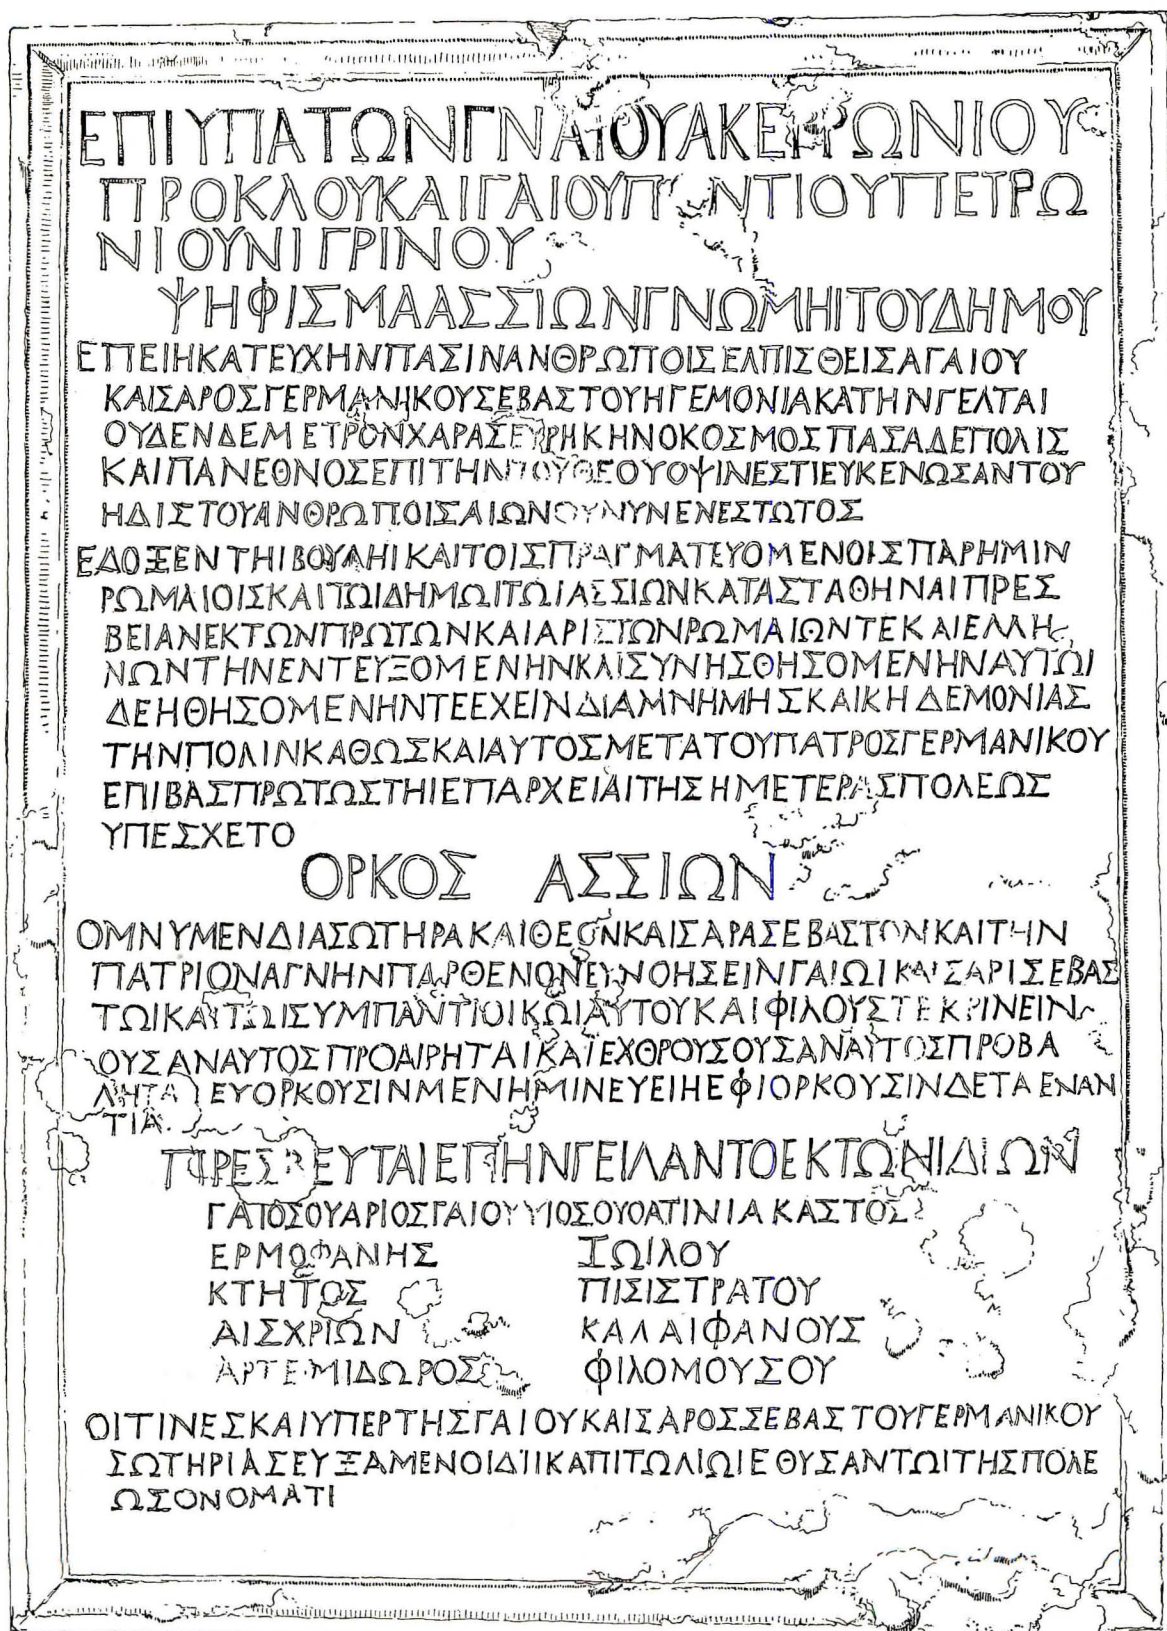 ΕΠΙΥΠΑΤΩΝΓΝΑΙΟΥΑΚΕΡΡΩΝΙΟΥ
ΠΡΟΚΛΟΥΚΑΙΓΑΙΟΥΠΟΝΤΙΟΥΠΕΤΡΩ
ΝΙΟΥΝΙΓΡΙΝΟΥ
ΨΗΦΙΣΜΑΑΣΣΙΩΝΓΝΩΜΗΙΤΟΥΔΗΜΟΥ
ΕΠΕΙΗΚΑΤΕΥΧΗΝΠΑΣΙΝΑΝΘΡΩΠΟΙΣΕΛΠΙΣΘΕΙΣΑΓΑΙΟΥ
ΚΑΙΣΑΡΟΣΓΕΡΜΑΝΙΚΟΥΣΕΒΑΣΤΟΥΗΓΕΜΟΝΙΑΚΑΤΗΝΓΕΛΤΑΙ
ΟΥΔΕΝΔΕΜΕΤΡΟΝΧΑΡΑΣΕΥΡΗΚΗΝΟΚΟΣΜΟΣΠΑΣΑΔΕΠΟΛΙΣ
ΚΑΙΠΑΝΕΘΝΟΣΕΠΙΤΗΝΤΟΥΘΕΟΥΟΨΙΝΕΣΤΙΕΥΚΕΝΩΣΑΝΤΟΥ
ΗΔΙΣΤΟΥΑΝΘΡΩΠΟΙΣΑΙΩΝΟΥΝΥΝΕΝΕΣΤΩΤΟΣ
ΕΔΟΞΕΝΤΗΙΒΟΥΛΗΙΚΑΙΤΟΙΣΠΡΑΓΜΑΤΕΥΟΜΕΝΟΙΣΠΑΡΗΜΙΝ
ΡΩΜΑΙΟΙΣΚΑΙΤΩΙΔΗΜΩΙΤΩΙΑΣΣΙΩΝΚΑΤΑΣΤΑΘΗΝΑΙΠΡΕΣ
ΒΕΙΑΝΕΚΤΩΝΠΡΩΤΩΝΚΑΙΑΡΙΣΤΩΝΡΩΜΑΙΩΝΤΕΚΑΙΕΛΛΗ
ΝΩΝΤΗΝΕΝΤΕΥΞΟΜΕΝΗΝΚΑΙΣΥΝΗΣΘΗΣΟΜΕΝΗΝΑΥΤΩΙ
ΔΕΗΘΗΣΟΜΕΝΗΝΤΕΕΧΕΙΝΔΙΑΜΝΗΜΗΣΚΑΙΚΗΔΕΜΟΝΙΑΣ
ΤΗΝΠΟΛΙΝΚΑΘΩΣΚΑΙΑΥΤΟΣΜΕΤΑΤΟΥΠΑΤΡΟΣΓΕΡΜΑΝΙΚΟΥ
ΕΠΙΒΑΣΠΡΩΤΩΣΤΗΙΕΠΑΡΧΕΙΑΙΤΗΣΗΜΕΤΕΡΑΣΠΟΛΕΩΣ
ΥΠΕΣΧΕΤΟ
ΟΡΚΟΣ ΑΣΣΙΩΝ
ΟΜΝΥΜΕΝΔΙΑΣΩΤΗΡΑΚΑΙΘΕΟΝΚΑΙΣΑΡΑΣΕΒΑΣΤΟΝΚΑΙΤΗΝ
ΠΑΤΡΙΟΝΑΓΝΗΝΠΑΡΘΕΝΟΝΕΥΝΟΗΣΕΙΝΓΑΙΩΙΚΑΙΣΑΡΙΣΕΒΑΣ
ΤΩΙΚΑΙΤΩΙΣΥΜΠΑΝΤΙΟΙΚΩΙΑΥΤΟΥΚΑΙΦΙΛΟΥΣΤΕΚΡΙΝΕΙΝ
ΟΥΣΑΝΑΥΤΟΣΠΡΟΑΙΡΗΤΑΙΚΑΙΕΧΘΡΟΥΣΟΥΣΑΝΑΥΤΟΣΠΡΟΒΑ
ΛΗΤΑΙΕΥΟΡΚΟΥΣΙΝΜΕΝΗΜΙΝΕΥΕΙΗΕΦΙΟΡΚΟΥΣΙΝΔΕΤΑΕΝΑΝ
ΤΙΑ
ΠΡΕΣΒΕΥΤΑΙΕΠΗΝΓΕΙΛΑΝΤΟΕΚΤΩΝΙΔΙΩΝ
ΓΑΙΟΣΟΥΑΡΙΟΣΓΑΙΟΥΥΙΟΣΟΥΟΛΤΙΝΙΑΚΑΣΤΟΣ
ΕΡΜΟΦΑΝΗΣ ΖΩΙΛΟΥ
ΚΤΗΤΟΣ ΠΙΣΙΣΤΡΑΤΟΥ
ΑΙΣΧΡΙΩΝ ΚΑΛΛΙΦΑΝΟΥΣ
ΑΡΤΕΜΙΔΩΡΟΣ ΦΙΛΟΜΟΥΣΟΥ
ΟΙΤΙΝΕΣΚΑΙΥΠΕΡΤΗΣΓΑΙΟΥΚΑΙΣΑΡΟΣΣΕΒΑΣΤΟΥΓΕΡΜΑΝΙΚΟΥ
ΣΩΤΗΡΙΑΣΕΥΞΑΜΕΝΟΙΔΙΙΚΑΠΙΤΩΛΙΩΙΕΘΥΣΑΝΤΩΙΤΗΣΠΟΛΕ
ΩΣΟΝΟΜΑΤΙ